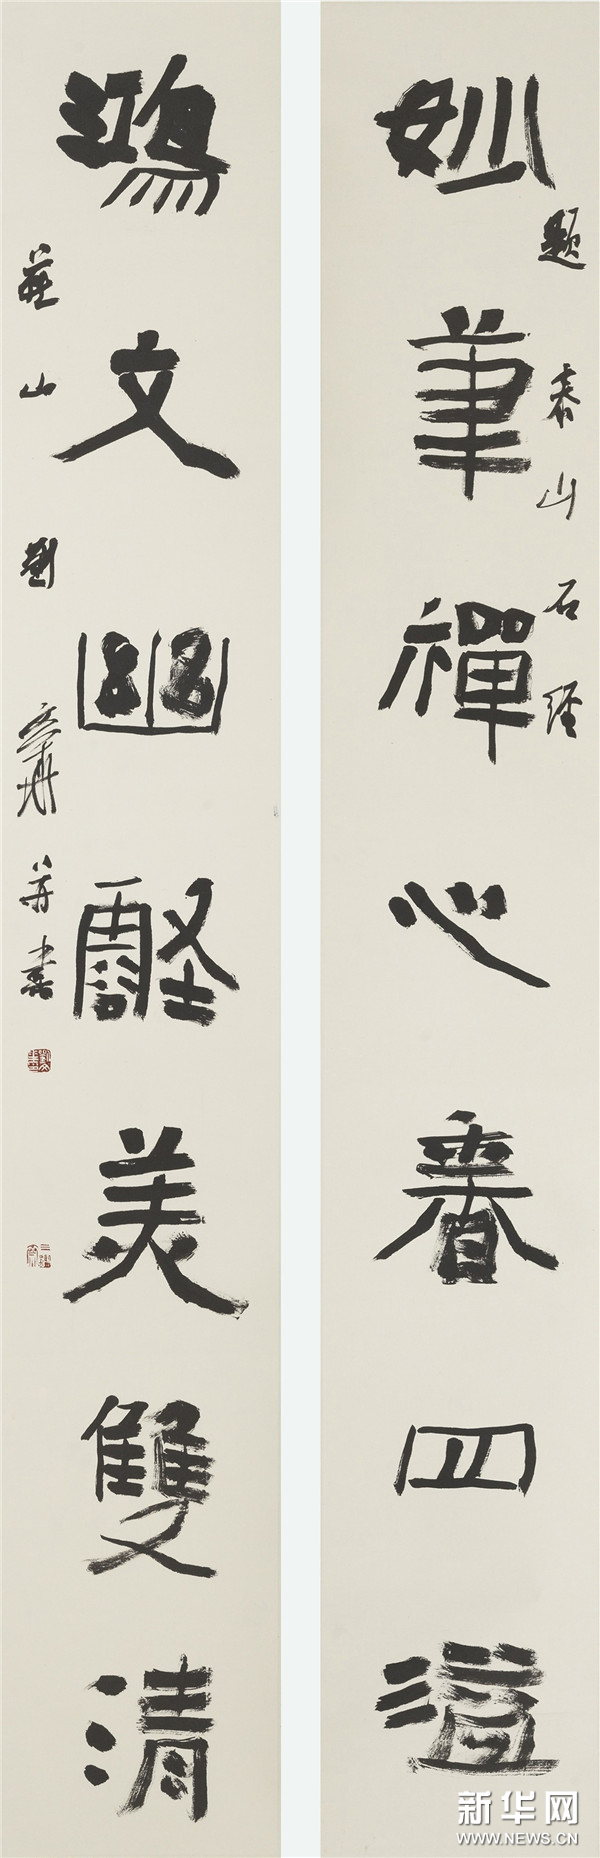 妙筆禪心香四溢
題泰山石經
鴻文幽壑美雙清
燕山劉文華并書
新华网
WWW.NEWS.CN